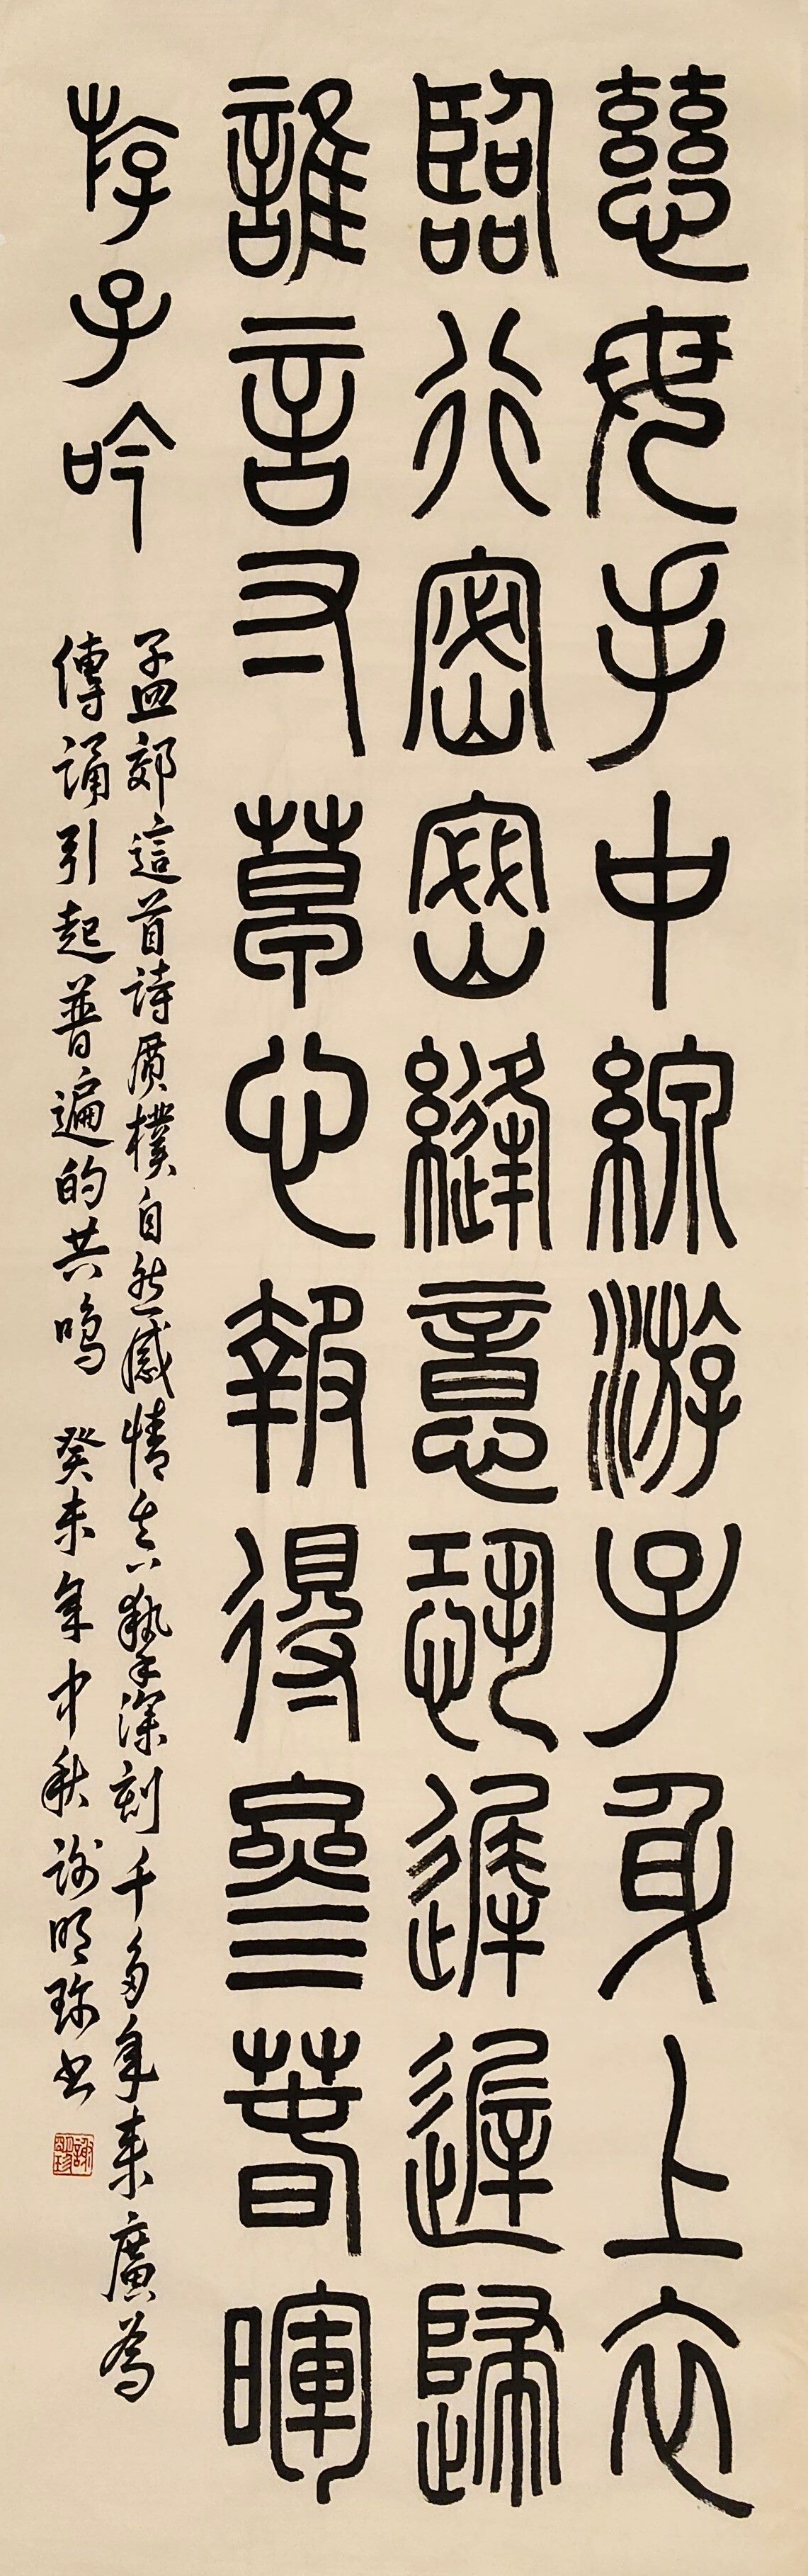 慈母手中線游子身上衣
臨行密密縫意恐遲遲歸
誰言寸草心報得叁春暉
斿子吟
孟郊這首詩質樸自然感情真摯深刻千多年来廣為
傳誦引起普遍的共鳴 癸未年中秋謝明珍书
謝明珍